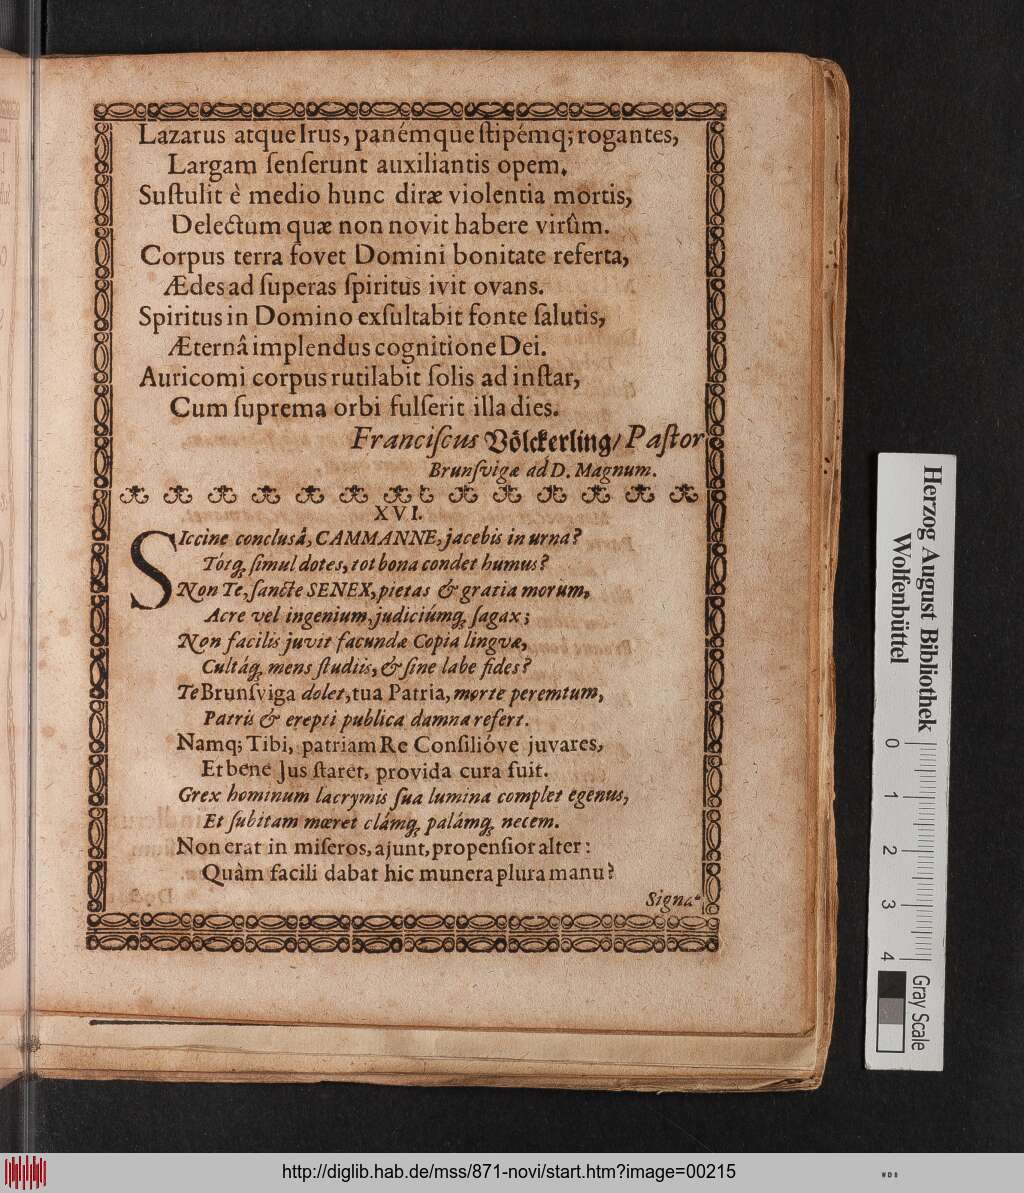 Lazarus atque Irus, panémque ſtipémq; rogantes,
Largam ſenſerunt auxiliantis opem.
Suſtulit è medio hunc diræ violentia mortis,
Delectum quæ non novit habere virûm.
Corpus terra fovet Domini bonitate referta,
Ædes ad ſuperas ſpiritus ivit ovans.
Spiritus in Domino exſultabit fonte ſalutis,
Æternâ implendus cognitione Dei.
Auricomi corpus rutilabit ſolis ad inſtar,
Cum ſuprema orbi fulſerit illa dies.
Franciſcus Völckerling/ Paſtor
Brunſvigæ ad D. Magnum.
XVI.
SIccine conclusâ, CAMMANNE, jacebis in urna?
Tótq; ſimul dotes, tot bona condet humus?
Non Te, ſancte SENEX, pietas & gratia morum,
Acre vel ingenium, judiciúmq; ſagax;
Non facilis juvit facundæ Copia lingvæ,
Cultáq; mens ſtudiis, & ſine labe fides?
Te Brunſviga dolet, tua Patria, morte peremtum,
Patris & erepti publica damna refert.
Namq; Tibi, patriam Re Conſilióve juvares,
Et bene Jus ſtaret, provida cura fuit.
Grex hominum lacrymis ſua lumina complet egenus,
Et ſubitam mœret clámq; palámq; necem.
Non erat in miſeros, ajunt, propenſior alter:
Quàm facili dabat hic munera plura manu?
Signa-
Herzog August Bibliothek
Wolfenbüttel
0 1 2 3 4
Gray Scale
http://diglib.hab.de/mss/871-novi/start.htm?image=00215
WDB